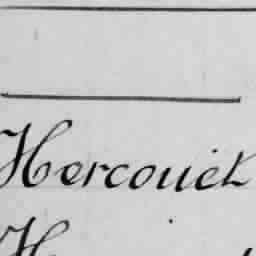 Hercouët
H